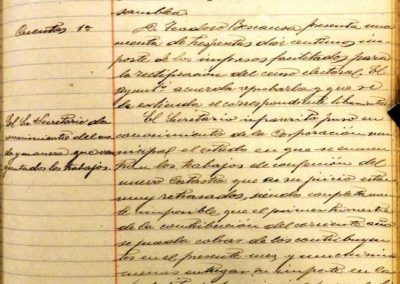 samblea.
Cuentas 1ª
D. Teodoro Boscansa presenta una
cuenta de trepentas diaz centimos im-
porte de los impresos facilitados para
la rectificacion del censo electoral, El
Ayuntº acuerda aprobarla y que se
le estienda el correspondiente libramiento
El Sr. Secretario da
conocimiento del es-
y manera que van
los trabajos.
El Secretario infrascrito puso en
conocimiento de la Corporacion mu-
nicipal el estado en que se encuen-
tran los trabajos de confeccion del
nuevo Catastro que a su juicio estan
muy retrasados, siendo completamen-
te imposible, que el primer trimestre
de la contribucion del corriente año
se pueda cobrar de los contribuyen-
tes en el presente mes y muchisimo
menos entregar su importe en la